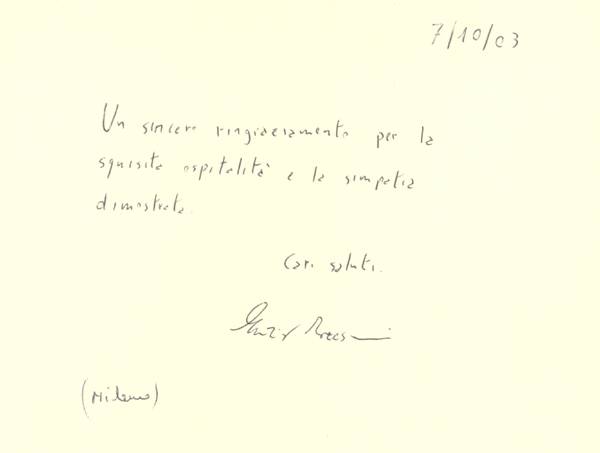 7/10/03
Un sincero ringraziamento per la
squisita ospitalità e la simpatia
dimostrata.
Cari saluti.
(Milano)